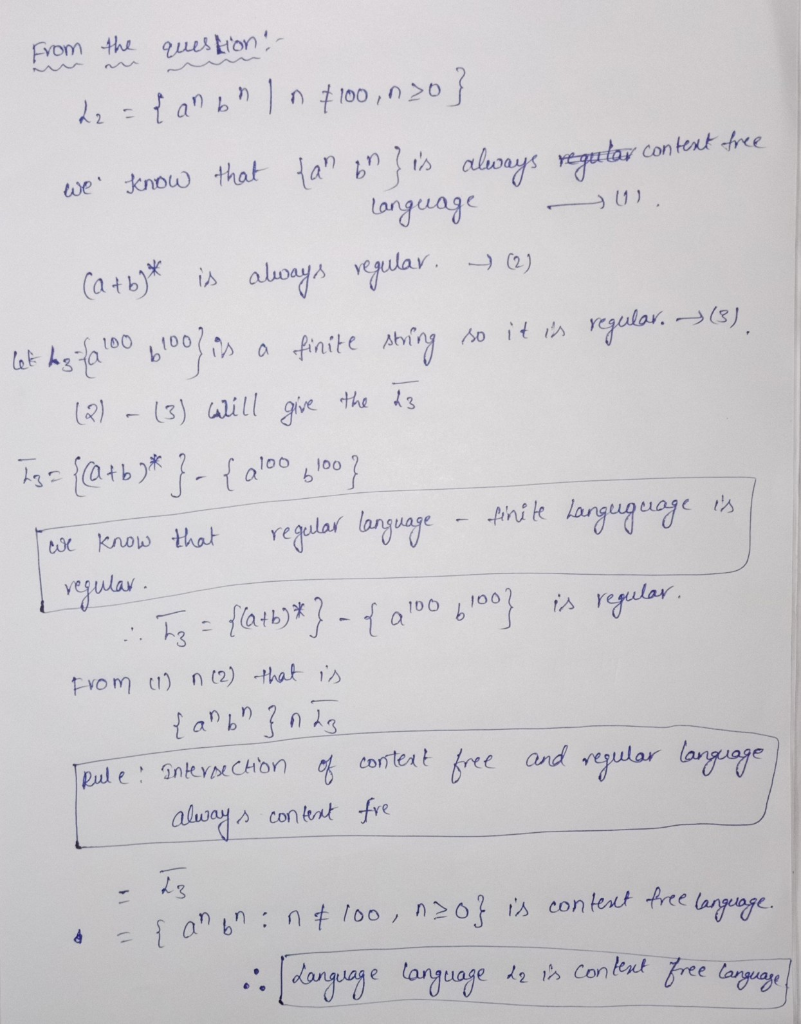 From the question:-
L2 = { aⁿ bⁿ | n ≠ 100, n ≥ 0 }
we know that {aⁿ bⁿ } is always regular context free
language → (1).
(a+b)* is always regular. → (2)
let L3={a¹⁰⁰ b¹⁰⁰} is a finite string so it is regular. → (3).
(2) - (3) will give the L̅3
L̅3 = {(a+b)* } - { a¹⁰⁰ b¹⁰⁰ }
we know that regular language - finite Languguage is
regular.
∴ L̅3 = {(a+b)* } - { a¹⁰⁰ b¹⁰⁰} is regular.
From (1) ∩ (2) that is
{ aⁿ bⁿ } ∩ L̅3
Rule : Intersection of context free and regular language
always context fre
= L̅3
= { aⁿ bⁿ : n ≠ 100, n ≥ 0} is context free language.
∴ Language language L2 is context free language